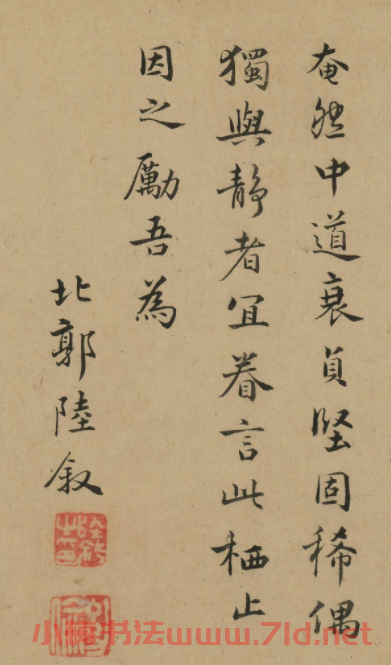 奄然中道衰貞堅固稀偶
獨與靜者宜眷言此栖止
因之勵吾為
北郭陸叙
小楷书法www.7ld.net